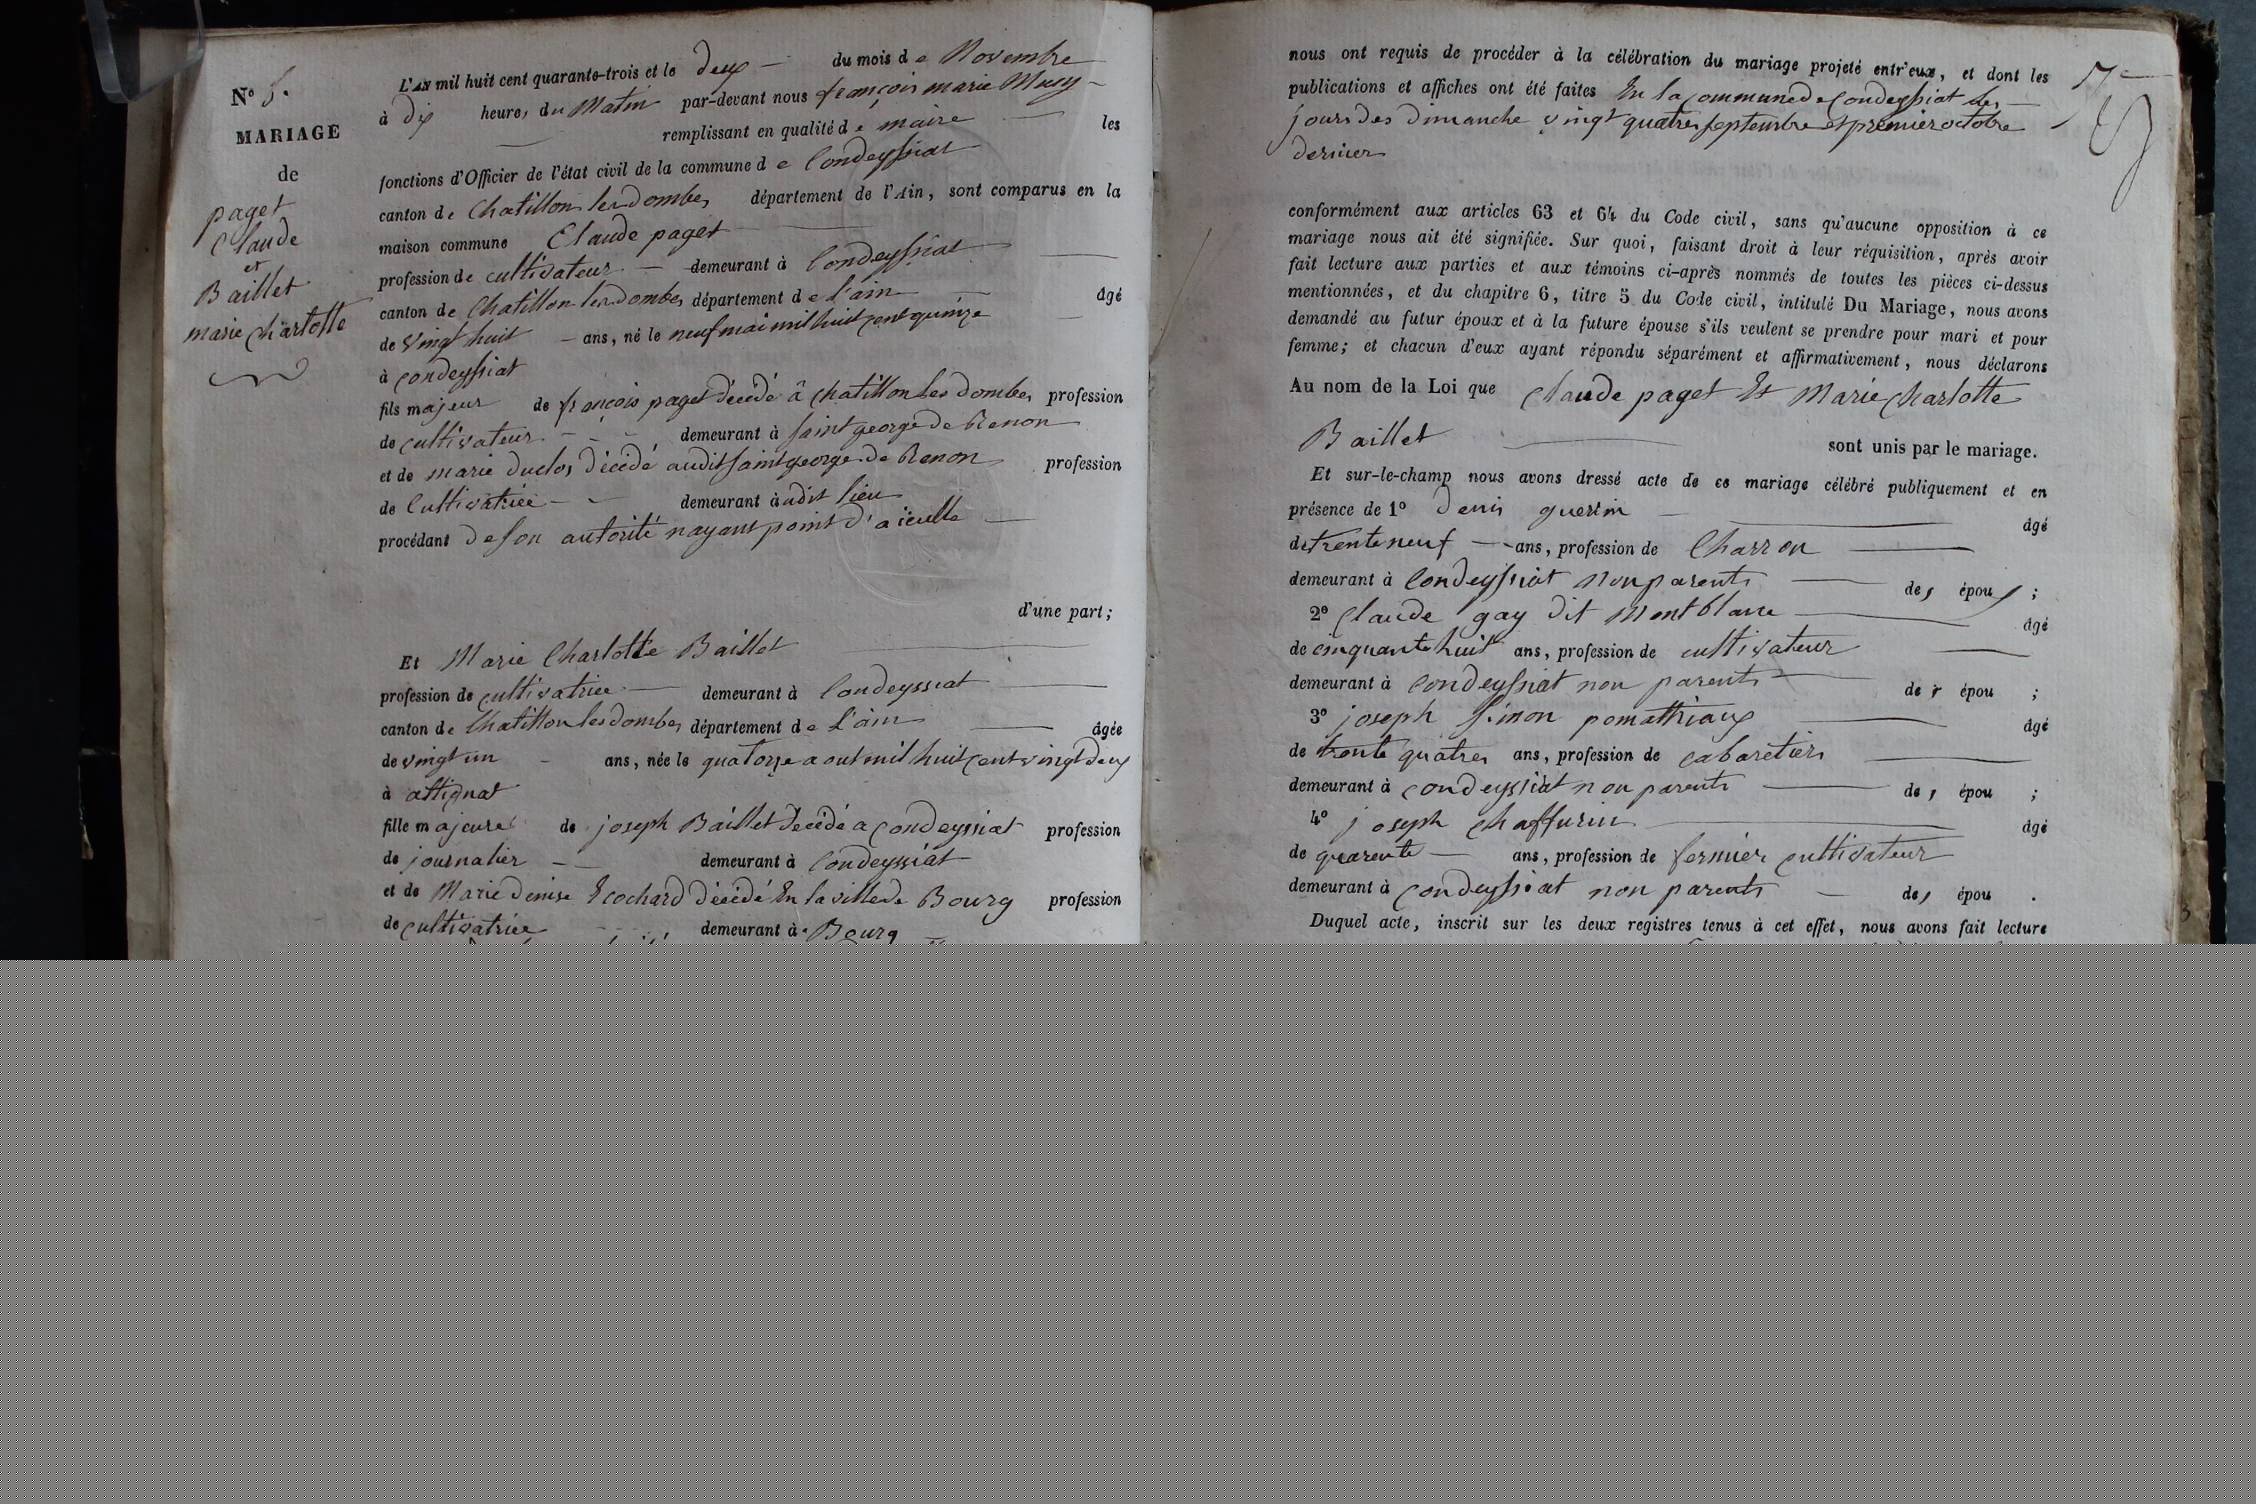 N° 5.
MARIAGE
de
paget
Claude
et
Baillet
marie charlotte
L'AN mil huit cent quarante-trois et le deux du mois de Novembre
à dix heures du Matin par-devant nous françois marie
remplissant en qualité de maire les
fonctions d'Officier de l'état civil de la commune de Condeyssiat
canton de Chatillon les dombes département de l'Ain, sont comparus en la
maison commune Claude paget
profession de cultivateur demeurant à Condeyssiat
canton de Chatillon les dombes département de L'ain âgé
de vingt huit ans, né le neuf mai mil huit cent quinze
à Condeyssiat
fils majeur de françois paget décédé à chatillon les dombes profession
de cultivateur demeurant à saint george de Renon
et de marie duclos décédé audit saint george de Renon profession
de Cultivatrice demeurant àudit lieu
procédant de son autorité nayant point d'aïeulle
d'une part;
Et Marie Charlotte Baillet
profession de cultivatrice demeurant à Condeyssiat
canton de Chatillon les dombes département de L'ain âgée
de vingt un ans, née le quatorze aout mil huit cent vingt deux
à attignat
fille majeure de joseph Baillet decédé a Condeyssiat profession
de journalier demeurant à Condeyssiat
et de Marie denise Ecochard décédé En la ville de Bourg profession
de cultivatrice demeurant à Bourg
nous ont requis de procéder à la célébration du mariage projeté entr'eux, et dont les
publications et affiches ont été faites En la commune de Condeyssiat les
jours des dimanche vingt quatre septembre et premier octobre
dernier
conformément aux articles 63 et 64 du Code civil, sans qu'aucune opposition à ce
mariage nous ait été signifiée. Sur quoi, faisant droit à leur réquisition, après avoir
fait lecture aux parties et aux témoins ci-après nommés de toutes les pièces ci-dessus
mentionnées, et du chapitre 6, titre 5 du Code civil, intitulé Du Mariage, nous avons
demandé au futur époux et à la future épouse s'ils veulent se prendre pour mari et pour
femme; et chacun d'eux ayant répondu séparément et affirmativement, nous déclarons
Au nom de la Loi que Claude paget Et Marie charlotte
Baillet sont unis par le mariage.
Et sur-le-champ nous avons dressé acte de ce mariage célébré publiquement et en
présence de 1° denis guerin âgé
de trente neuf ans, profession de Charron
demeurant à Condeyssiat non parents des époux ;
2° Claude gay dit Montblanc âgé
de cinquante huit ans, profession de cultivateur
demeurant à Condeyssiat non parents des épou ;
3° joseph simon pomathiaux âgé
de trente quatre ans, profession de cabaretier
demeurant à condeyssiat non parents des épou ;
4° joseph chaffurin âgé
de quarente ans, profession de fermier cultivateur
demeurant à condeyssiat non parents des épou .
Duquel acte, inscrit sur les deux registres tenus à cet effet, nous avons fait lecture